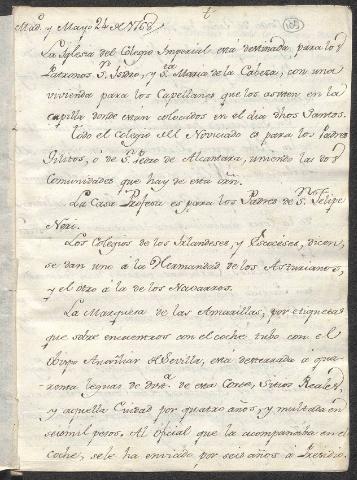 Mad. y Mayo 24 de 1768
La Iglesia del Colegio Imperial está destinada para los
Patronos Sn. Isidro, y Sta. Maria de la Cabeza, con una
vivienda para los Capellanes que los asisten en la
capilla donde estan colocados en el dia dhos Santos.
Todo el Colegio del Noviciado es para los Padres
Gilitos, ó de Sn. Pedro de Alcantara, uniendo las dos
Comunidades que hay de esta orn.
La Casa Profesa es para los Padres de Sn. Felipe
Neri.
Los Colegios de los Irlandeses, y Escoceses, dicen,
se dan uno á la Hermandad de los Asturianos,
y el otro á la de los Navarros.
La Marquesa de las Amarillas, por etiquetas
que sobre encuentros con el coche tubo con el
Obispo Auxiliar de Sevilla, está desterrada á qua-
renta leguas de dista. de esta Corte, Sitios Reales,
y aquella Ciudad por quatro años, y multada en
seis mil pesos. Al oficial que la acompañaba en el
coche, se le ha enviado por seis años a Presidio.